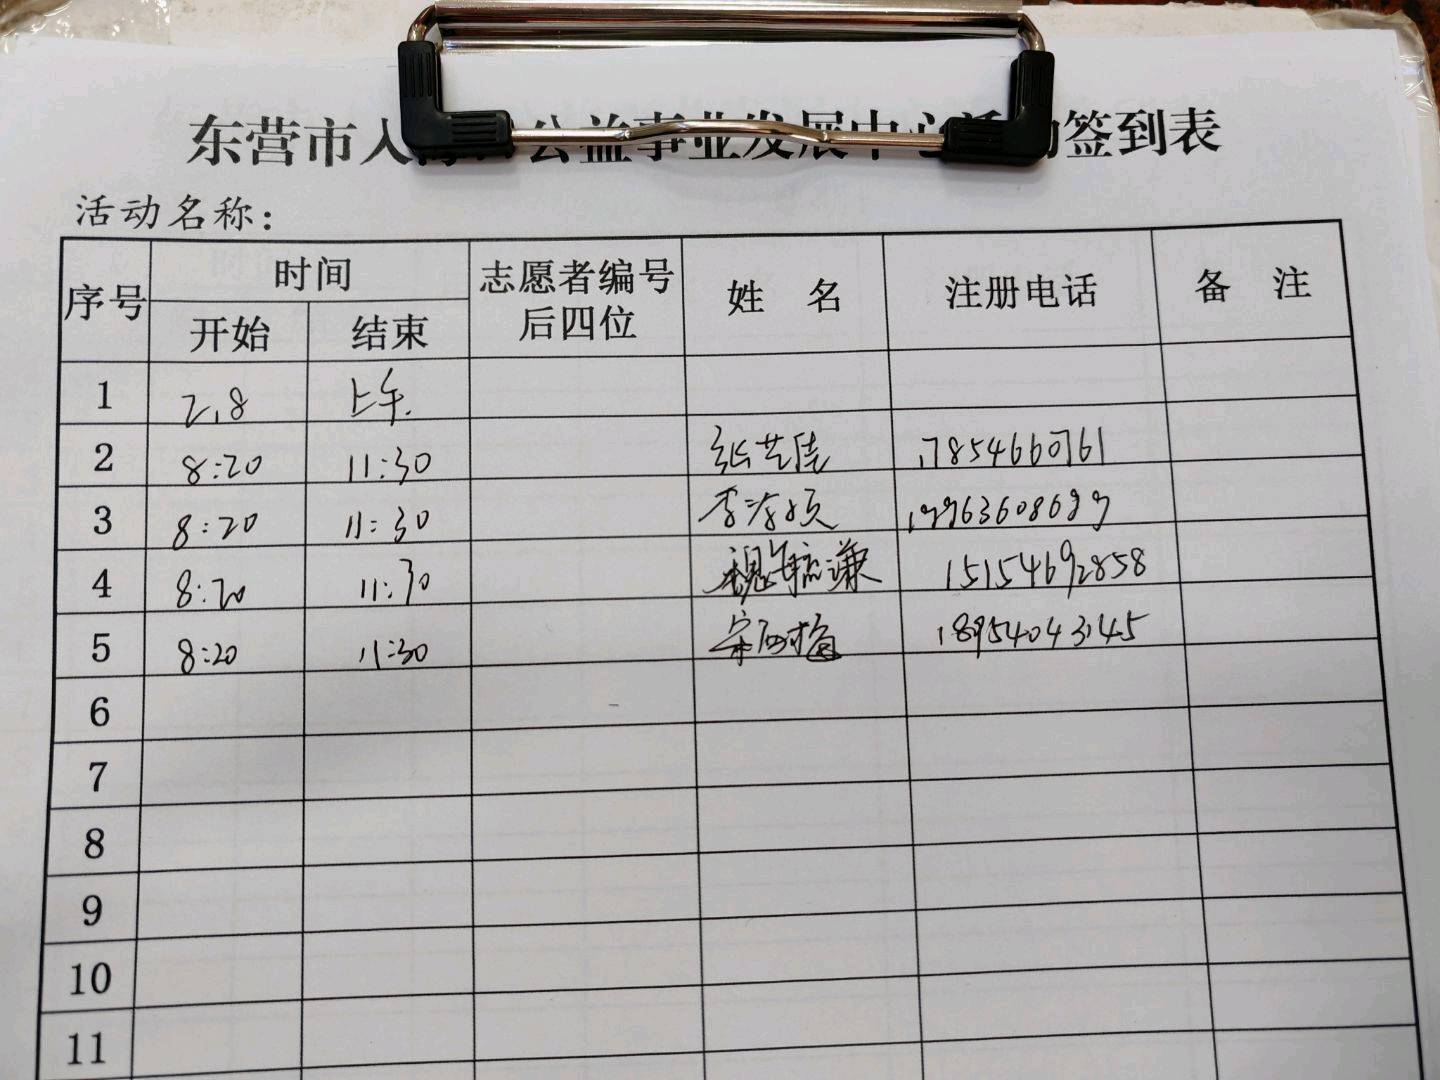 东营市入海口公益事业发展中心活动签到表
活动名称：
序号 时间 志愿者编号后四位 姓 名 注册电话 备 注
开始 结束
1 2.8 上午.
2 8:20 11:30 张芝佳 17854660761
3 8:20 11:30 李 19963608699
4 8:20 11:30 魏毓谦 15154692858
5 8:20 11:30 宋 梅 18954043145
6
7
8
9
10
11